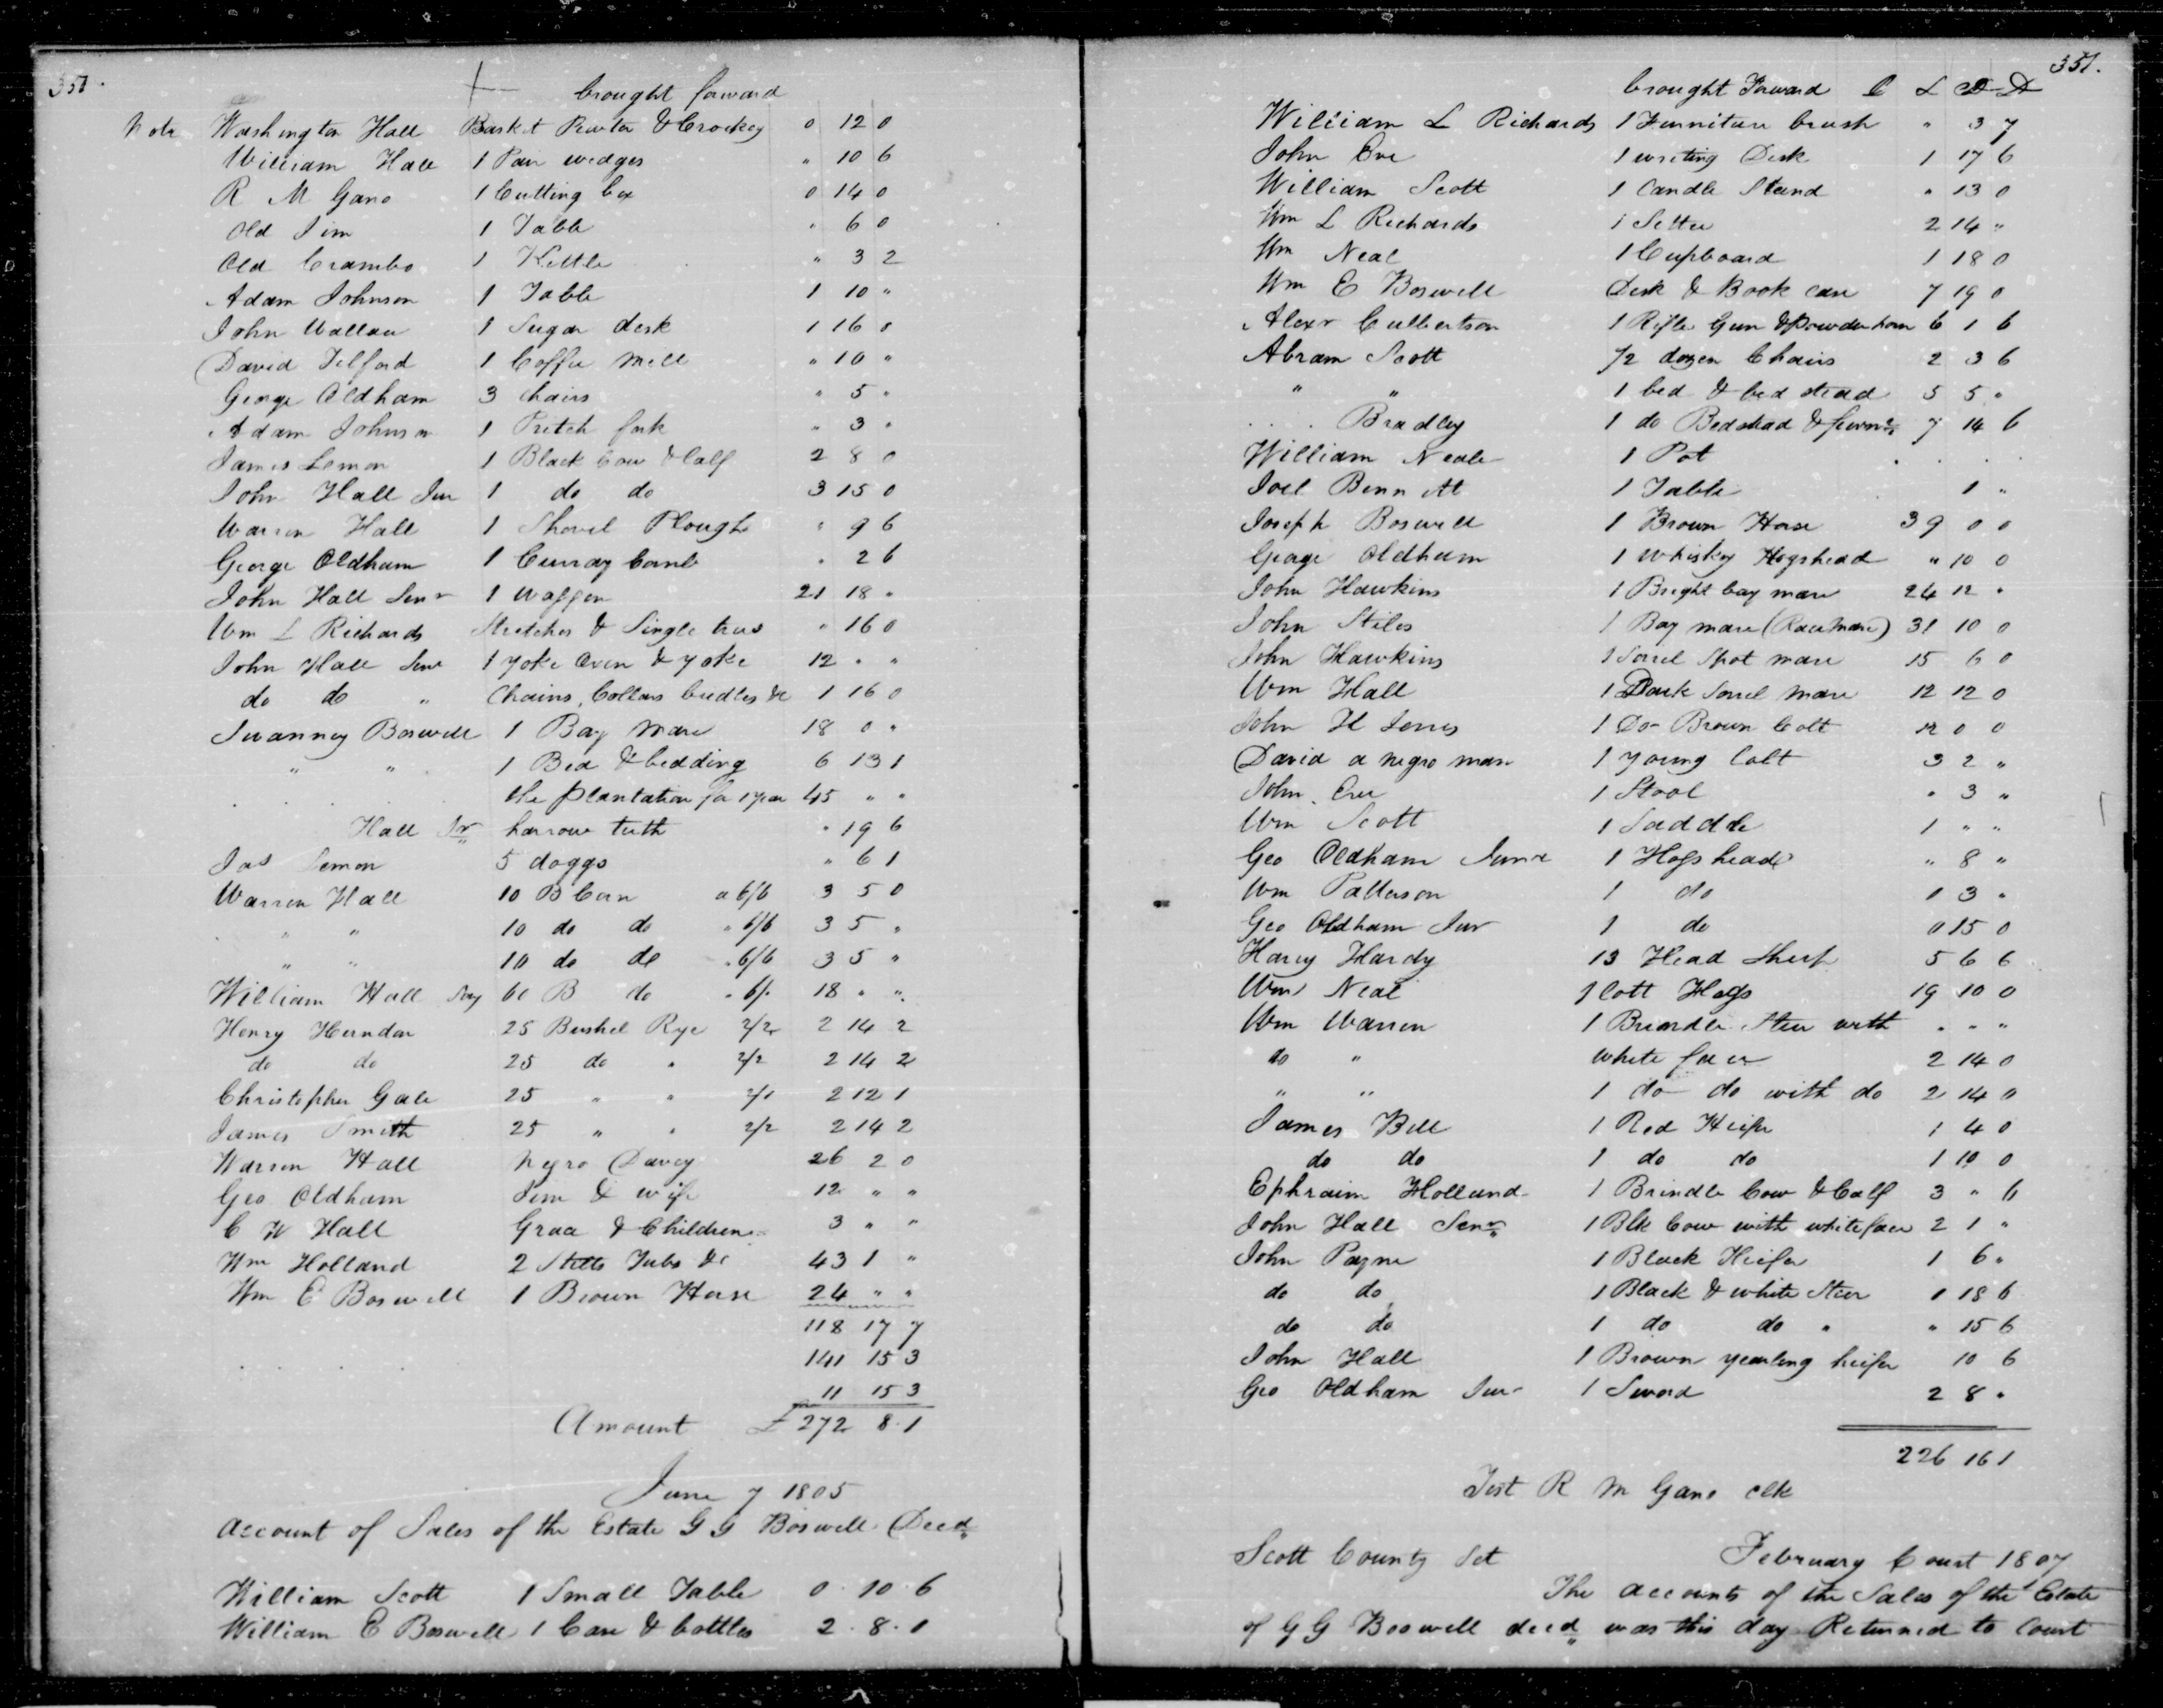 brought forward
Note Washington Hall Basket Pewter & Crockey 0 12 0
William Hall 1 Pair wedges " 10 6
R M Gano 1 Cutting box 0 14 0
Old Jim 1 Table " 6 0
Old Crambo 1 Kettle " 3 2
Adam Johnson 1 Table 1 10 "
John Wallace 1 Sugar desk 1 16 0
David Telford 1 Coffee Mill " 10 "
George Oldham 3 chairs " 5 "
Adam Johnson 1 Pritch fork " 3 "
James Lemon 1 Black Cow & Calf 2 8 0
John Hall Jur 1 do do 3 15 0
Warren Hall 1 Shovel Plough " 9 6
George Oldham 1 Curray Comb " 2 6
John Hall Senr 1 Waggon 21 18 "
Wm L Richards Stretcher & Single trees " 16 0
John Hall Senr 1 yoke Oxen & yoke 12 " "
do do " Chains, Collars bridles &c 1 16 0
Boswell 1 Bay Mare 18 0 "
" " 1 Bed & bedding 6 13 1
the plantation for 1 year 45 " "
Hall Sr harrow teeth " 19 6
Jas Lemon 5 doggs " 6 1
Warren Hall 10 B Corn a 6/6 3 5 0
" " 10 do do " 6/6 3 5 "
" " 10 do do " 6/6 3 5 "
William Hall 60 B do " 6/. 18 " "
Henry Herndon 25 Bushel Rye 2/2 2 14 2
do do 25 do " 2/2 2 14 2
Christopher Gale 25 " " 2/1 2 12 1
James Smith 25 " " 2/2 2 14 2
Warren Hall Negro Davey 26 2 0
Geo Oldham Jim & wife 12 " "
C W Hall Grace & Children 3 " "
Wm Holland 2 Stills Tubs &c 43 1 "
Wm E Boswell 1 Brown Horse 24 " "
118 17 7
141 15 3
11 15 3
Amount £ 272 8.1
June 7 1805
Account of Sales of the Estate G G Boswell Decd
William Scott 1 Small Table 0.10.6
William E Boswell 1 Case & bottles 2.8.0
351.
brought Forward
William L Richards 1 Furniture brush " 3 7
John 1 writing Desk 1 17 6
William Scott 1 Candle Stand " 13 0
Wm L Richards 1 Settee 2 14 "
Wm Neal 1 Cupboard 1 18 0
Wm E Boswell Desk & Book case 7 19 0
Alexr Culbertson 1 Rifle Gun & Powder horn 6 1 6
Abram Scott 1/2 dozen Chairs 2 3 6
" " 1 bed & bed stead 5 5 "
Bradley 1 do Bedstead & 7 14 6
William Neale 1 Pot . . .
Joel Bennett 1 Table 1 "
Joseph Boswell 1 Brown Horse 39 0 0
George Oldham 1 Whiskey Hogshead " 10 0
John Hawkins 1 Bright bay mare 24 12 "
John Stiles 1 Bay mare (Race Mare) 31 10 0
John Hawkins 1 Sorrel Spot mare 15 6 0
Wm Hall 1 Dark Sorrel Mare 12 12 0
John H Jones 1 Do Brown Colt 12 0 0
David a negro man 1 young Colt 3 2 "
John 1 Stool " 3 "
Wm Scott 1 Saddle 1 " "
Geo Oldham Junr 1 Hogshead " 8 "
Wm Patterson 1 do 1 3 "
Geo Oldham Jur 1 do 0 15 0
Harvy Hardy 13 Head Sheep 5 6 6
Wm Neal 1 Lott Hogs 19 10 0
Wm Warren 1 Brindle Steer with " " "
do " white face 2 14 0
" " 1 do do with do 2 14 0
James Bell 1 Red Heifer 1 4 0
do do 1 do do 1 10 0
Ephraim Holland 1 Brindle Cow & Calf 3 " 6
John Hall Senr 1 Blk Cow with white face 2 1 "
John Payne 1 Black Heifer 1 6 "
do do 1 Black & white Steer 1 18 6
do do 1 do do " " 15 6
John Hall 1 Brown yearling heifer 10 6
Geo Oldham Jur 1 Sword 2 8 "
226 16 1
Test R M Gano Clk
Scott County Sct February Court 1807
The accounts of the Sales of the Estate
of G G Boswell decd was this day Returned to Court